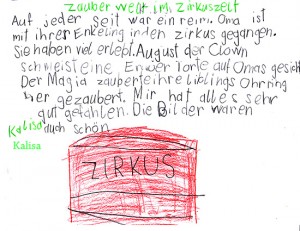 zauber welt im Zirkuszelt
Auf jeder seit war ein reim. Oma ist
mit ihrer Enkeling in den zirkus gegangen.
Sie haben viel erlept. August der Clown
schmeist eine Erwer Torte auf Omas gesicht
Der Magia zauberte ihre liblings Ohrring
her gezaubert. Mir hat alles sehr
gut gefahlen. Die Bilder waren
auch schön.
Kalisa
Kalisa
ZIRKUS